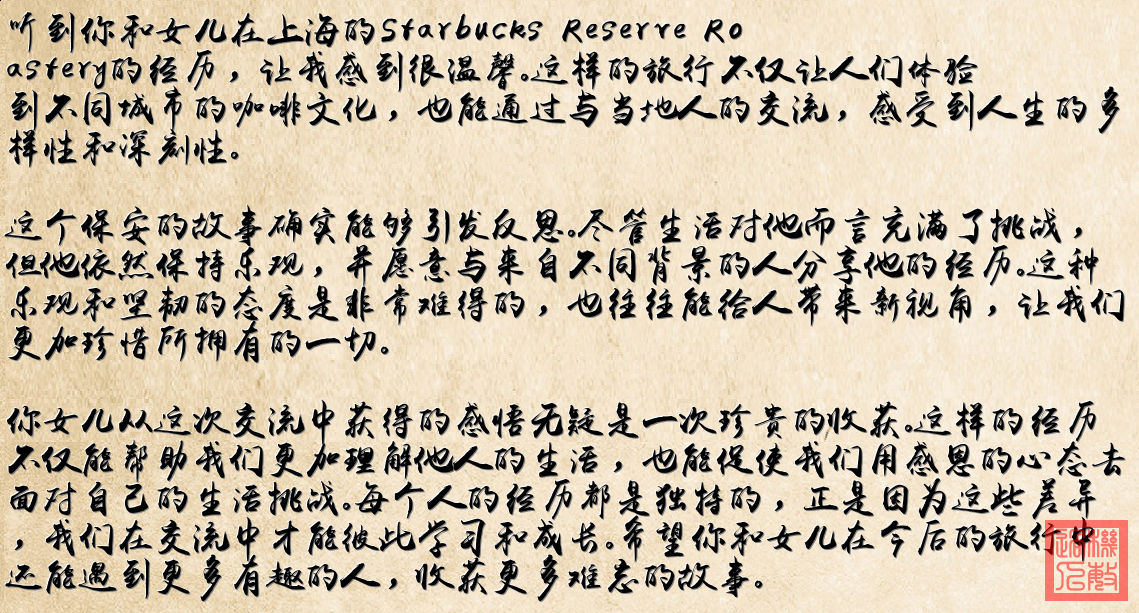 听到你和女儿在上海的Starbucks Reserve Ro
astery的经历，让我感到很温馨。这样的旅行不仅让人们体验
到不同城市的咖啡文化，也能通过与当地人的交流，感受到人生的多
样性和深刻性。
这个保安的故事确实能够引发反思。尽管生活对他而言充满了挑战，
但他依然保持乐观，并愿意与来自不同背景的人分享他的经历。这种
乐观和坚韧的态度是非常难得的，也往往能给人带来新视角，让我们
更加珍惜所拥有的一切。
你女儿从这次交流中获得的感悟无疑是一次珍贵的收获。这样的经历
不仅能帮助我们更加理解他人的生活，也能促使我们用感恩的心态去
面对自己的生活挑战。每个人的经历都是独特的，正是因为这些差异
，我们在交流中才能彼此学习和成长。希望你和女儿在今后的旅行中
还能遇到更多有趣的人，收获更多难忘的故事。